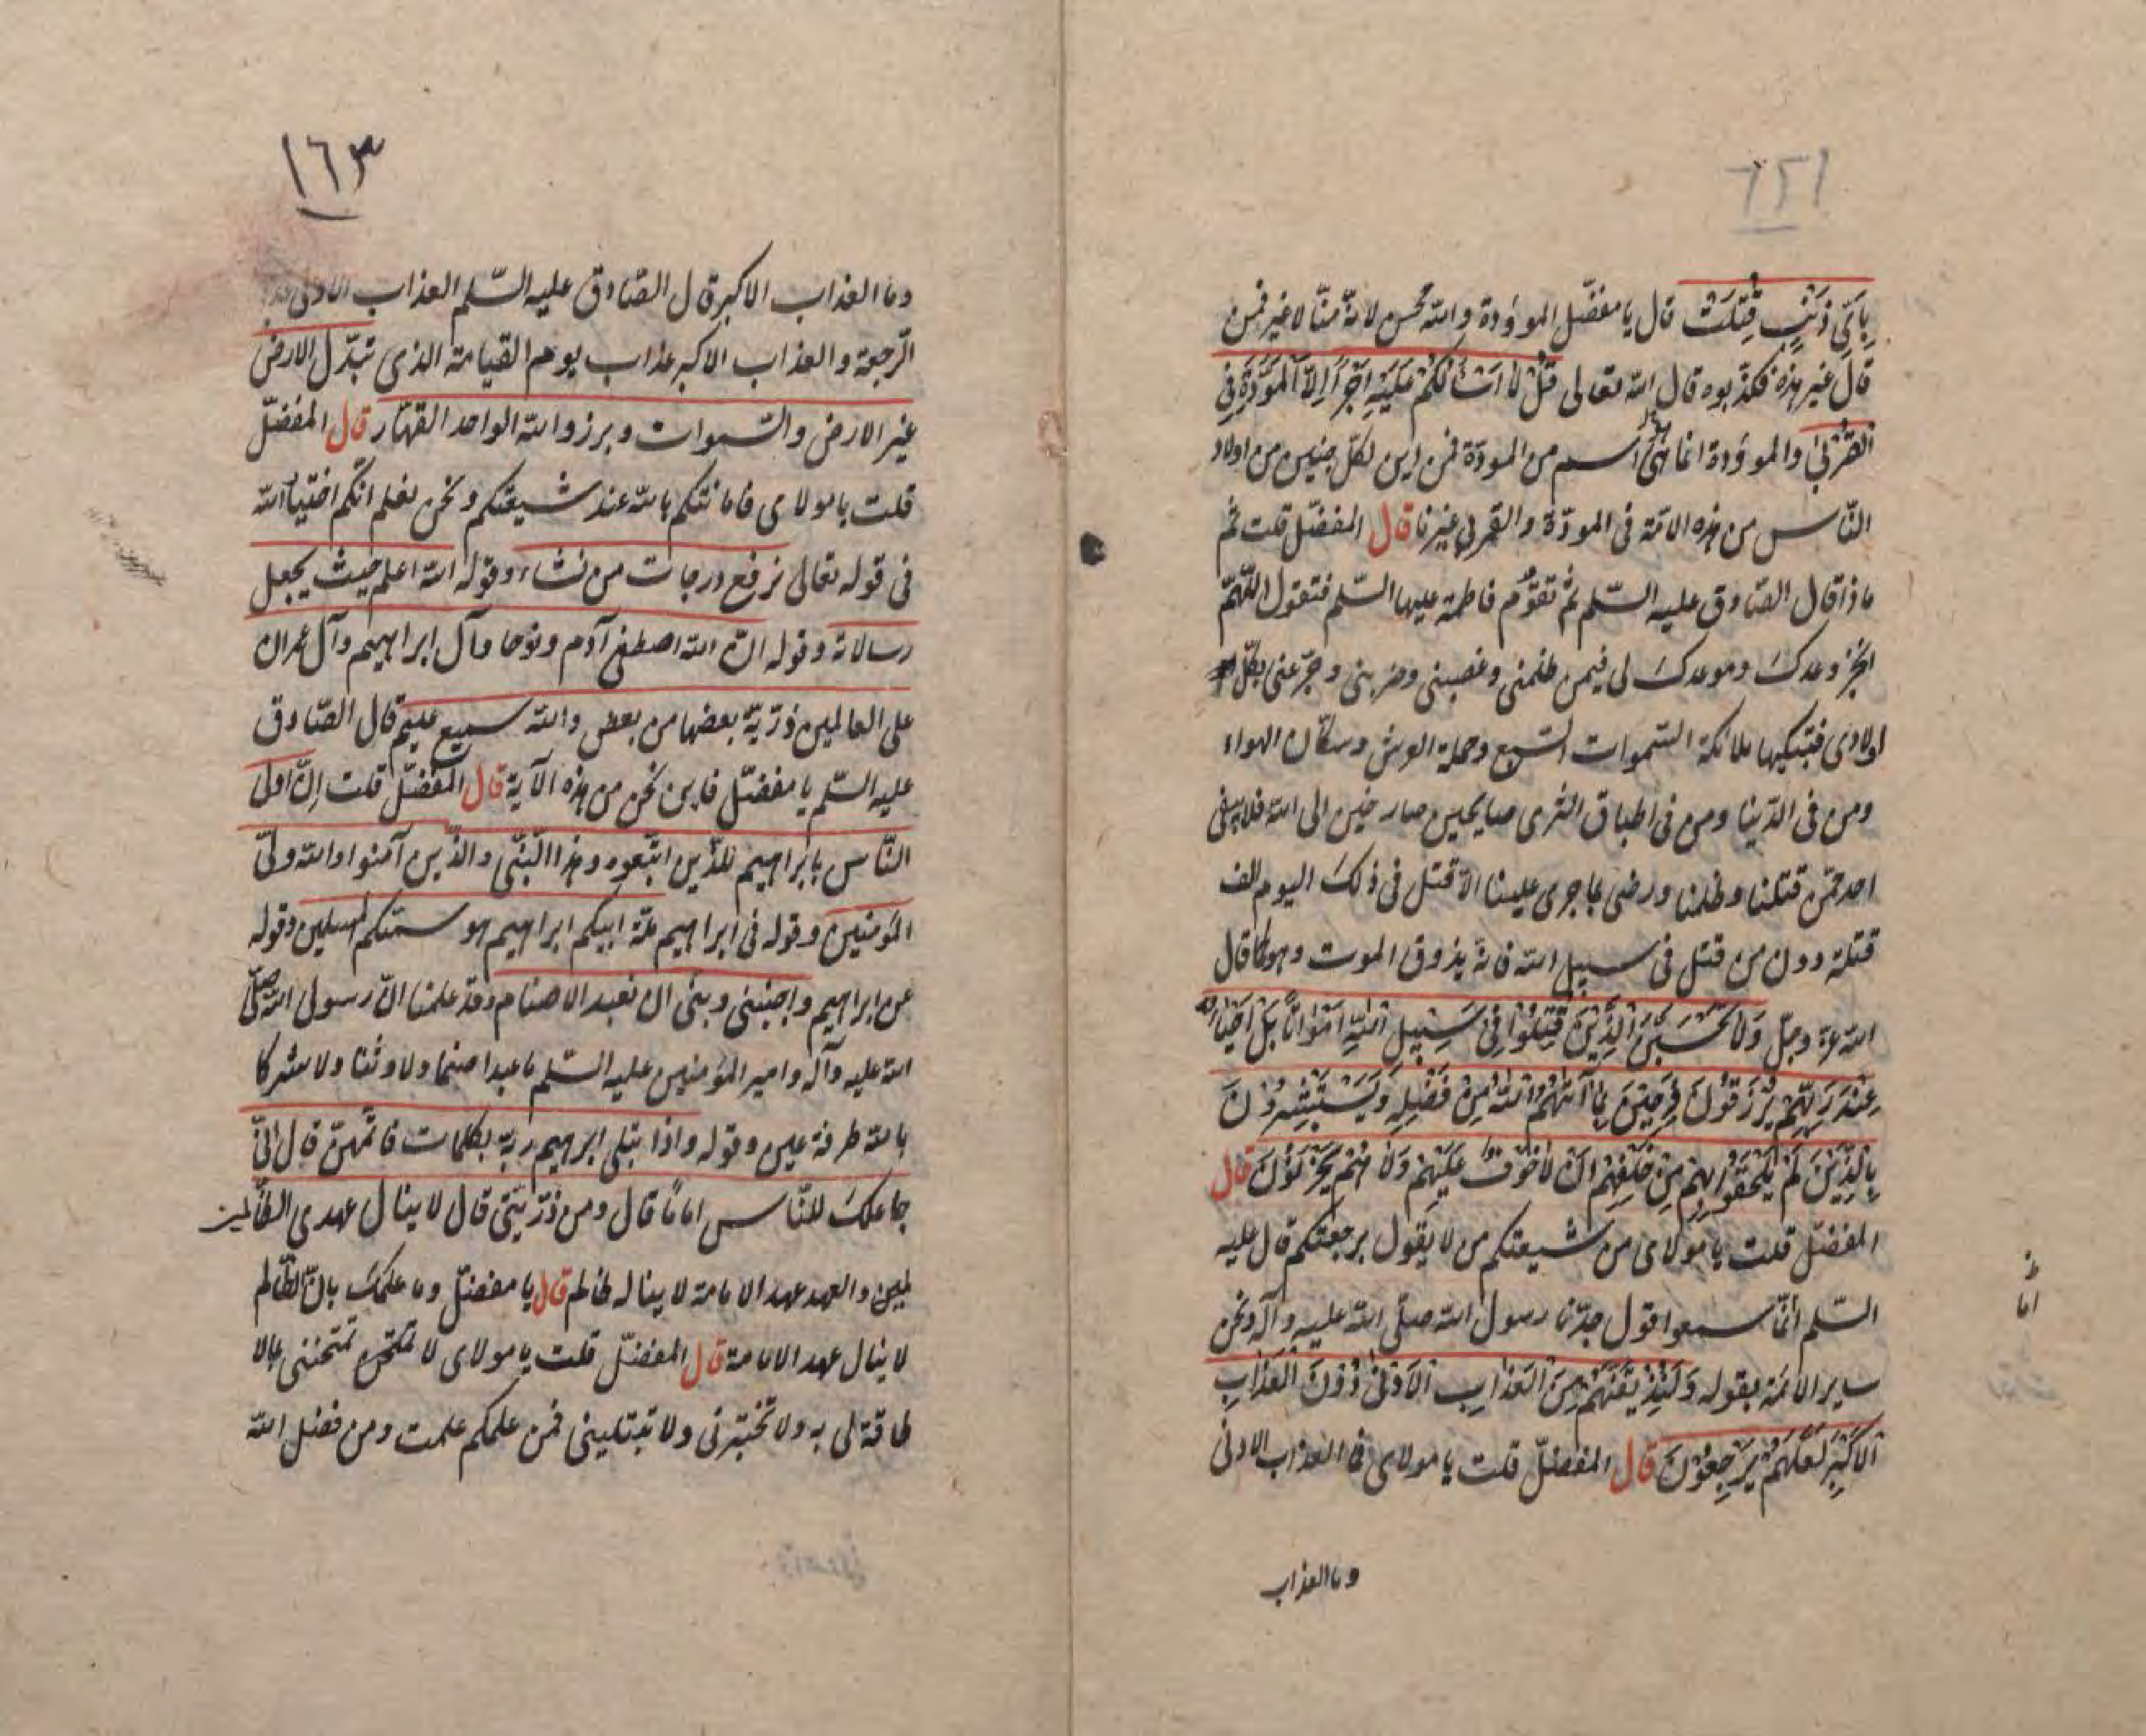 بِاَىِّ ذَنْبٍ قُتِلَتْ قال يا مفضّل الموؤدة والله محسن لانّه منّا لا غير فمن
قال غير هذه فكذبوه قال الله تعالى قُلْ لا اَسْئَلُكُمْ عَلَيْهِ اَجْرًا اِلَّا الْمَوَدَّةَ فِى
الْقُرْبىٰ والموؤدة انما هى اسم من المودّة فمن اين لكل جنين من اولاد
النّاس من هذه الامّة فى المودّة والقربى غيرنا قال المفضّل قلت ثم
ماذا قال الصّادق عليه السّلم ثم تقوم فاطمة عليها السّلم فتقول اللّهمّ
انجز وعدك وموعدك لى فيمن ظلمنى وغصبنى وضربنى وجزعنى بكلّ
اولادى فتبكيها ملائكة السّموات السّبع وحملة العرش وسكّان الهواء
ومن فى الدّنيا ومن فى اطباق الثرى صايحين صارخين الى الله فلا يبقى
احد ممّن قتلنا وظلمنا ورضى بما جرى علينا الا قتل فى ذلك اليوم الف
قتلة دون من قتل فى سبيل الله فانه يذوق الموت وهو كما قال
الله عزّ وجلّ وَلَا تَحْسَبَنَّ الَّذِيْنَ قُتِلُوْا فِى سَبِيلِ اللهِ اَمْوَاتًا بَلْ اَحْيَاءٌ
عِنْدَ رَبِّهِمْ يُرْزَقُوْنَ فَرِحِيْنَ بِمَا آتٰهُمُ اللهُ مِنْ فَضْلِهِ وَيَسْتَبْشِرُوْنَ
بِالَّذِيْنَ لَمْ يَلْحَقُوْا بِهِمْ مِنْ خَلْفِهِمْ اَنْ لَا خَوْفٌ عَلَيْهِمْ وَلَا هُمْ يَحْزَنُوْنَ قال
المفضّل قلت يا مولاى من شيعتكم من لا يقول برجعتكم قال عليه
السّلم انّما سمعوا قول جدّنا رسول الله صلّى الله عليه وآله ونحن
ساير الائمة بقوله وَلَنُذِيْقَنَّهُمْ مِنَ الْعَذَابِ الْاَدْنىٰ دُوْنَ الْعَذَابِ
الْاَكْبَرِ لَعَلَّهُمْ يَرْجِعُوْنَ قال المفضّل قلت يا مولاى فما العذاب الادنى
وما العذاب
١٦٣
وما العذاب الاكبر قال الصّادق عليه السّلم العذاب الادنى
الرّجعة والعذاب الاكبر عذاب يوم القيامة الذى تبدّل الارض
غير الارض والسّموات وبرزوا لله الواحد القهّار قال المفضّل
قلت يا مولاى فامامتكم بالله عند شيعتكم ونحن نعلم انّكم اختيار الله
فى قوله تعالى نرفع درجات من نشاء وقوله الله اعلم حيث يجعل
رسالاته وقوله انّ الله اصطفى آدم ونوحا وآل ابراهيم وآل عمران
على العالمين ذرّيّة بعضها من بعض والله سميع عليم قال الصّادق
عليه السّلم يا مفضّل فاين نحن من هذه الآية قال المفضّل قلت انّ اولى
النّاس بابراهيم للذين اتّبعوه وهذا النّبىّ والذّين آمنوا والله ولىّ
المؤمنين وقوله فى ابراهيم ملّة ابيكم ابراهيم هو سمّيكم المسلمين وقوله
عن ابراهيم واجنبنى وبنىّ ان نعبد الاصنام وقد علمنا انّ رسول الله صلّى
الله عليه وآله وامير المؤمنين عليه السّلم ما عبدا صنما ولا وثنا ولا اشركا
بالله طرفة عين وقوله واذا بتلى ابرهيم ربّه بكلمات فاتمّهنّ قال انّى
جاعلك للنّاس اماما قال ومن ذرّيّتى قال لا ينال عهدى الظّالمين
لمين والعهد عهد الامامة لا يناله ظالم قال يا مفضّل وما علمك بانّ الظّالم
لا ينال عهد الامامة قال المفضّل قلت يا مولاى لا تمتحن تمتحننى بما لا
طاقة لى به ولا تختبرنى ولا تبتلينى فمن علمكم علمت ومن فضل الله